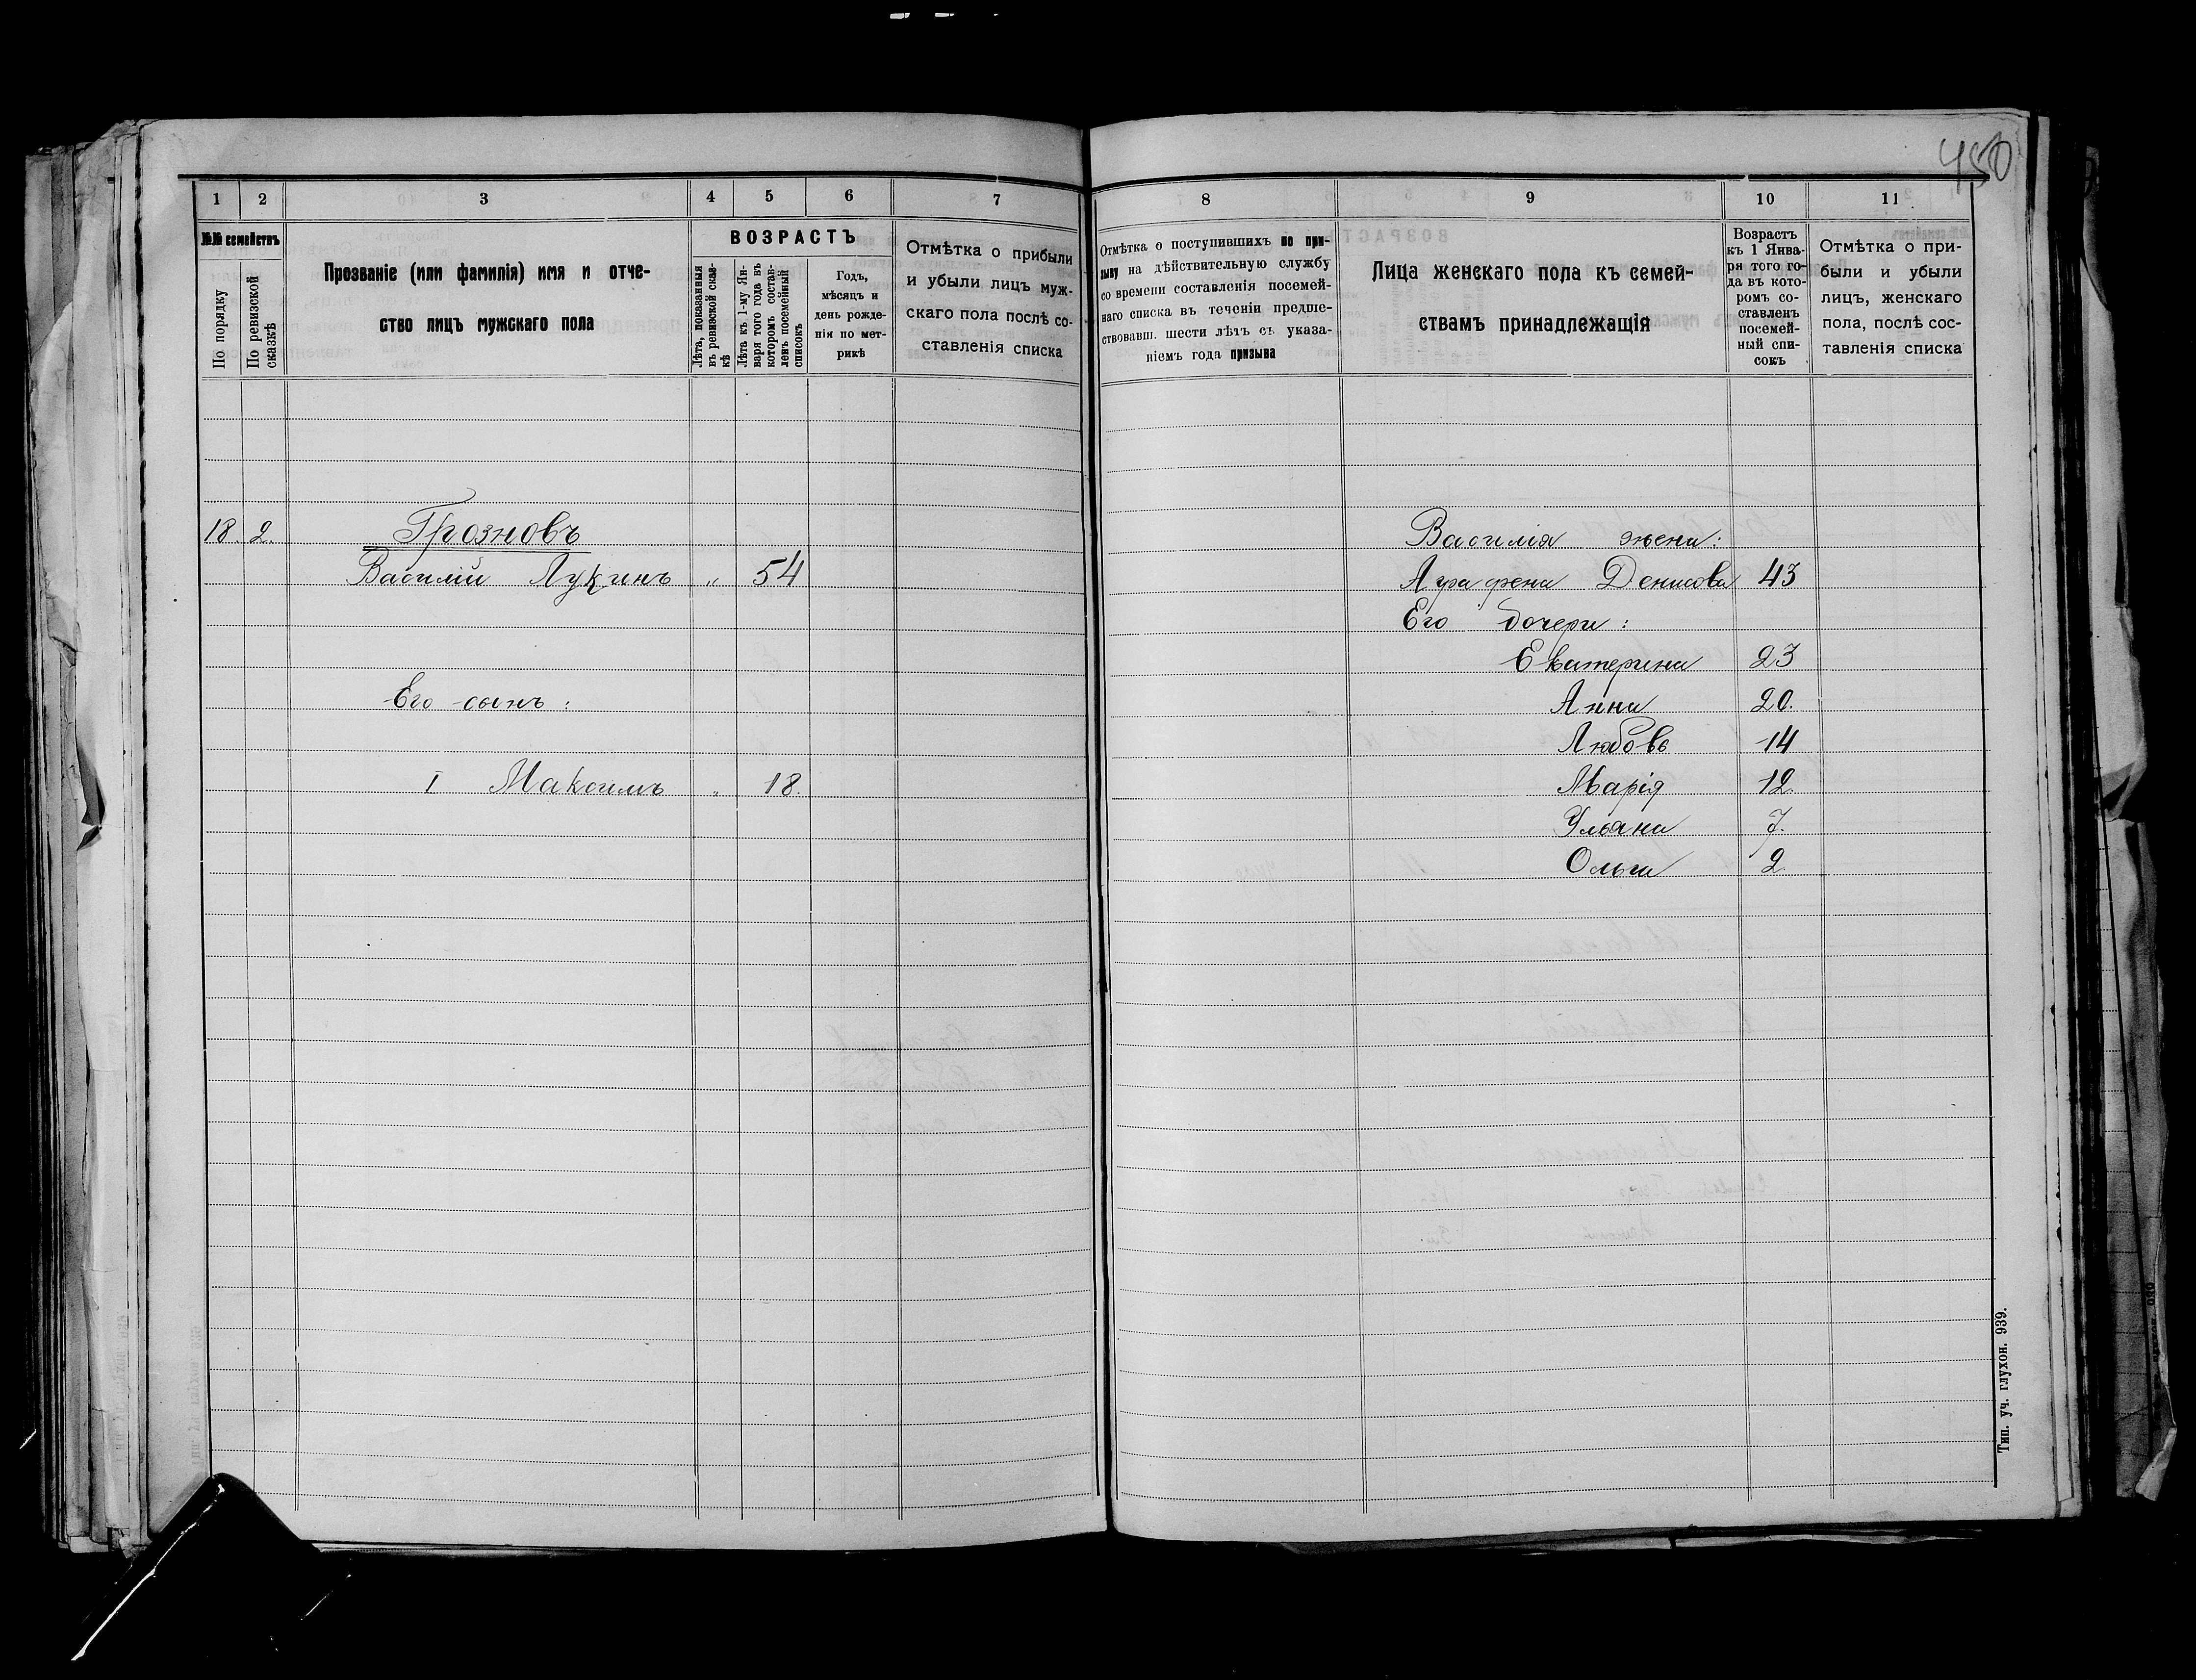 450
1 2 3 4 5 6 7
№№ семействъ
По порядку
По ревизской сказкѣ
Прозваніе (или фамилія) имя и отче-
ство лицъ мужскаго пола
ВОЗРАСТЪ
Лѣта, показанныя
въ ревизской сказ-
кѣ
Лѣта къ 1-му Ян-
варя того года къ
которомъ состав-
ленъ посемейный
списокъ
Годъ,
мѣсяцъ и
день рожде-
нія по мет-
рикѣ
Отмѣтка о прибыли
и убыли лицъ муж-
скаго пола послѣ со-
ставленія списка
18. 2. Грозновъ
Василій Лукинъ „ 54
Его сынъ:
1 Максимъ „ 18.
8 9 10 11
Отмѣтка о поступившихъ по при-
зыву на дѣйствительную службу
со времени составленія посемей-
наго списка въ теченіи предше-
ствовавш. шести лѣтъ съ указа-
ніемъ года призыва
Лица женскаго пола къ семей-
ствамъ принадлежащія
Возрастъ
къ 1 Янва-
ря того го-
да въ кото-
ромъ со-
ставленъ
посемей-
ный спи-
сокъ
Отмѣтка о при-
были и убыли
лицъ, женскаго
пола, послѣ сос-
тавленія списка
Василія жена:
Аграфена Денисова 43
Его дочери:
Екатерина 23
Анна 20.
Любовь 14
Марія 12.
Ульяна 7.
Ольга 2.
Тип. уч. глухон. 939.